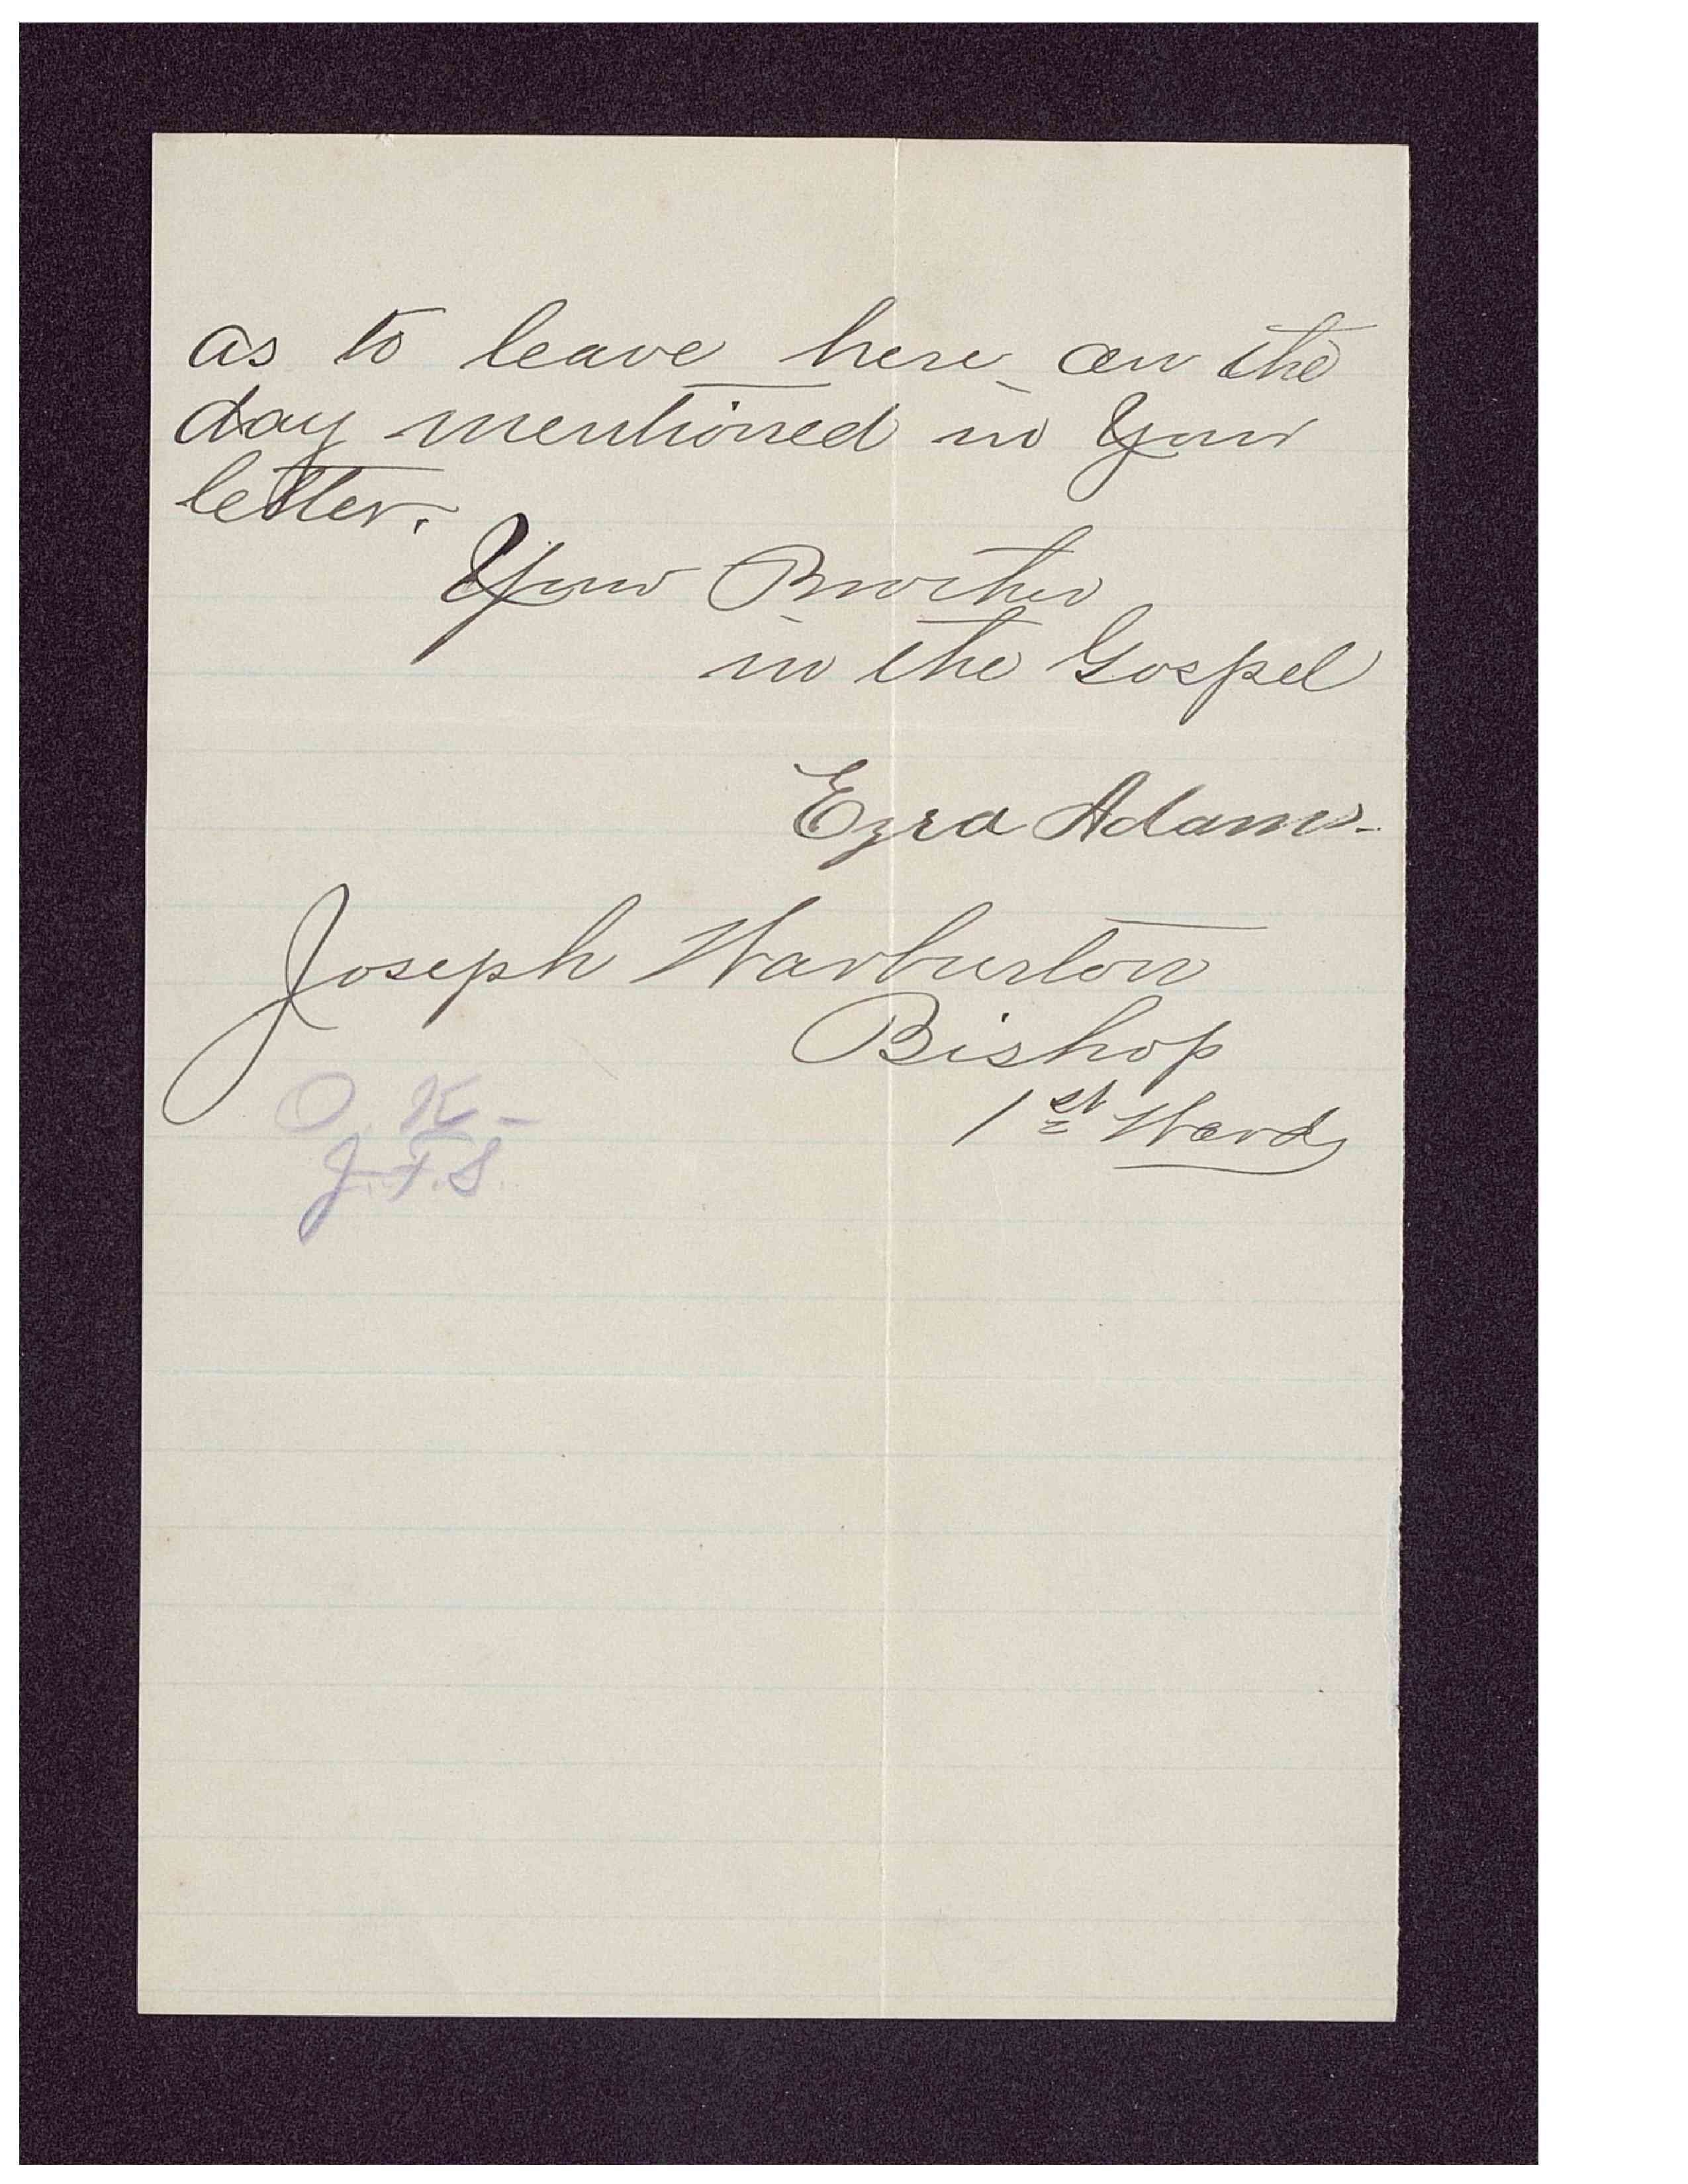 as to leave here on the
day mentioned in Your
letter.
Your Brother
in the Gospel
Ezra Adams-
Joseph Warburton
Bishop
1st Ward
O. K-
J. F. S.